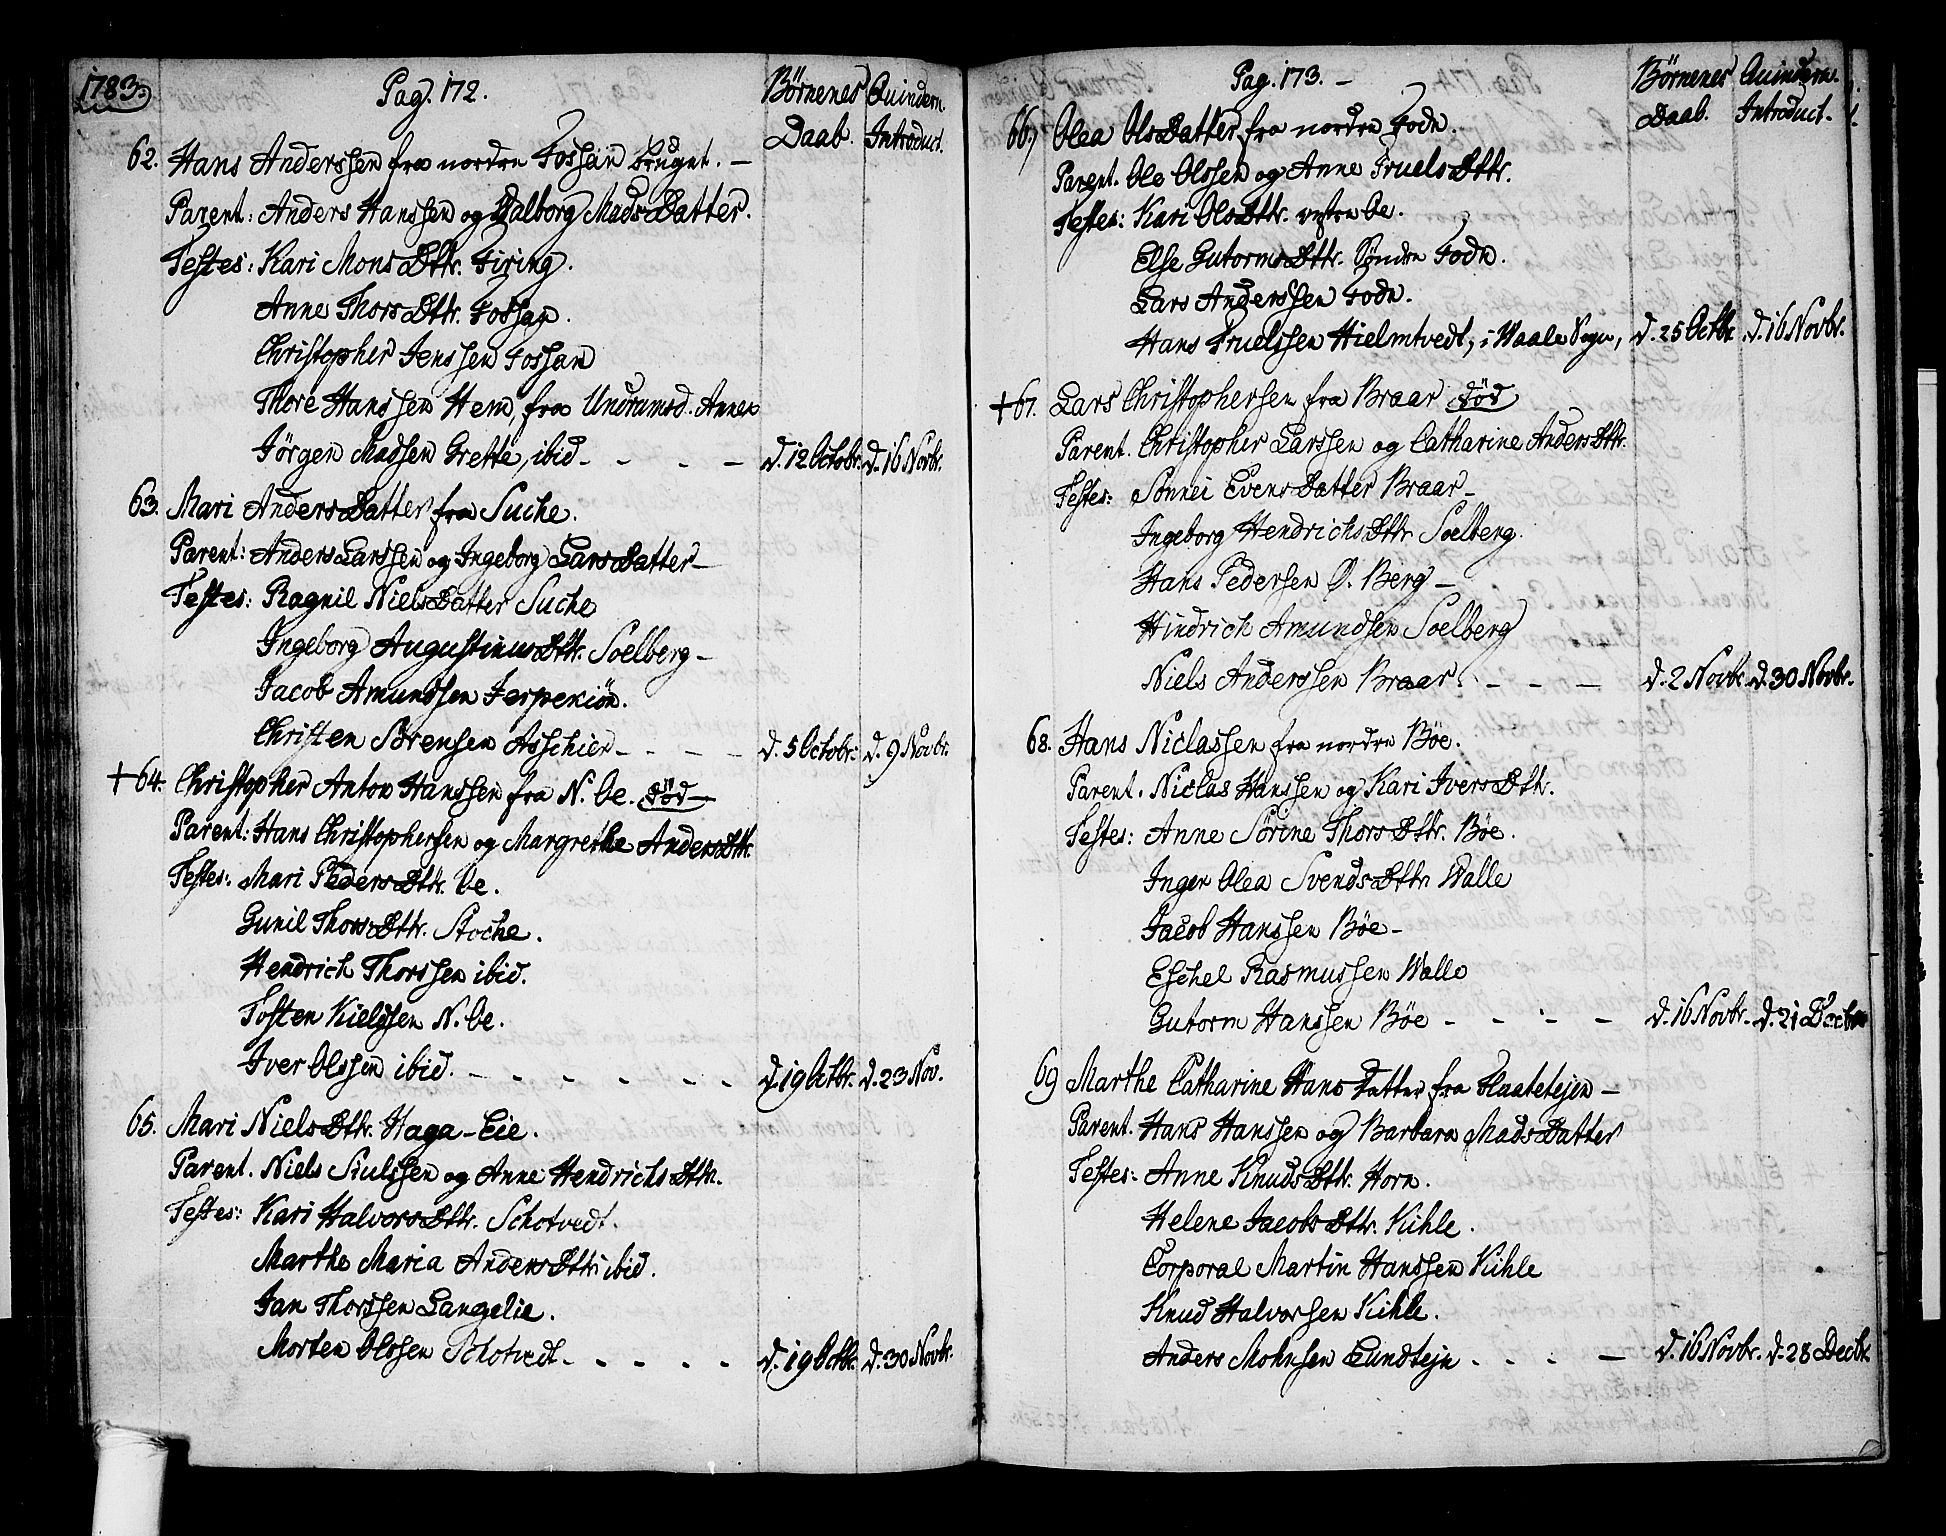 1783.
Pag. 172.
Börnenes Daab.
Quindern. Introduct.
62. Hans Anderssen fra nordre Fossan bruget. -
Parent: Anders Hanssen og Walborg MadsDatter.
Testes: Kari MonsDttr. Firing.
Anne ThorsDttr. Fossan.
Christopher Jenssen Fossan
Thore Hanssen Hem, fra Undrumsd. Annex
Jörgen Madsen Grette, ibid - - - - d. 12 Octobr. d. 16 Novbr.
63. Mari AndersDatter fra Suche.
Parent: Anders Larssen og Ingeborg LarsDatter -
Testes: Ragnil NielsDatter Suche
Ingeborg AugustinusDttr. Soelberg -
Jacob Amundssen Jerpekiön.
Christen Sörensen Asschier - - - - d. 5 Octobr: d. 9 Novbr.
+ 64. Christopher Anton Hanssen fra N. Oe. död -
Parent: Hans Christophersen og Margrethe AndersDttr.
Testes: Mari PedersDttr. Oe.
Gunil ThorsDttr. Stoche.
Hendrich Thorssen ibid.
Tosten Kieldsen N. Oe.
Iver Olssen ibid. - - - - - - - d. 19 Octbr. d. 23 Nov.
65. Mari NielsDttr. Haga-Eie.
Parent. Niels Siulssen og Anne HendrichsDttr.
Testes: Kari HalvorsDttr. Schotvedt.
Marthe Maria AndersDttr ibid.
Jan Thorssen Langelie.
Morten Olssen Schotvedt - - - - - d. 19 Octbr. d. 30 Novbr.
Pag. 173. -
Börnenes Daab.
Quindern. Introduct.
66. Olea OlsDatter fra nordre Fodn.
Parent. Ole Olssen og Anne TruelsDttr.
Testes: Kari OlsDttr. vestre Oe.
Else GutormsDttr. Söndre Fodn.
Lars Anderssen Fodn.
Hans Truelssen Hielmtvedt, i Waale Sogn, d. 25 Octbr. d. 16 Novbr.
+ 67. Lars Christophersen fra Braar död
Parent. Christopher Larssen og Catharine AndersDttr.
Testes: Sönnei EvensDatter Braar -
Ingeborg HendrichsDttr Soelberg.
Hans Pedersen Ø. Berg -
Hindrich Amundsen Soelberg
Niels Anderssen Braar. - - - d. 2 Novbr. d. 30 Novbr.
68. Hans Niclassen fra nordre Böe.
Parent. Niclas Hanssen og Kari IversDttr.
Testes: Anne Sörine ThorsDttr. Böe.
Inger Olea SvendsDttr Walle
Jacob Hanssen Böe -
Eschel Rasmussen Walle
Gutorm Hanssen Böe - - - - d. 16 Novbr. d. 21 Decbr
69 Marthe Catharine HansDatter fra Slaatetejen -
Parent. Hans Hanssen og Barbara MadsDatter
Testes: Anne KnudsDttr. Horn.
Helene JacobsDttr. Kihle.
Corporal Martin Hanssen Kihle
Knud Halvorsen Kihle.
Anders Mohnsen Lundtejn - - - - d. 16 Novbr. d. 28 Decbr.